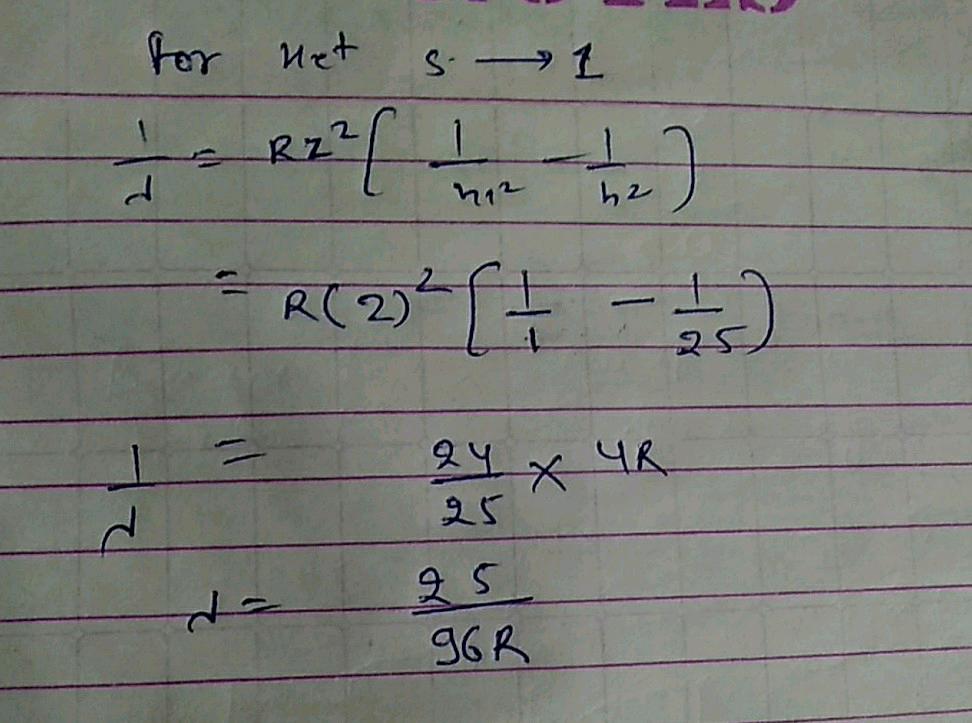 for Het 5 → 1
1/λ = RZ² [ 1/n₁² - 1/n² ]
= R(2)² [ 1/1 - 1/25 ]
1/λ = 24/25 × 4R
λ = 25/96R